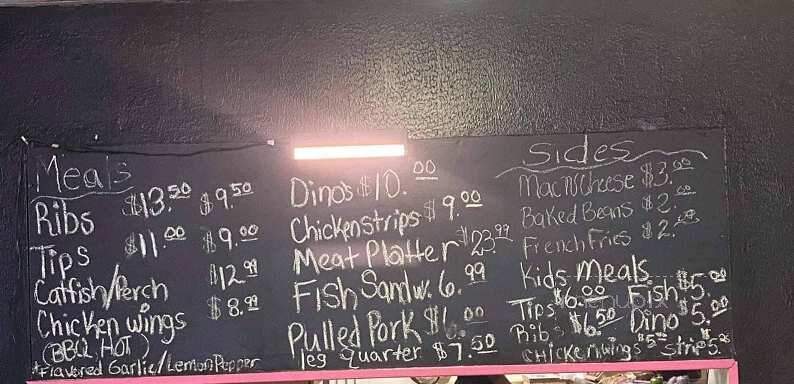 Meals
Ribs $13.50 $9.50
Tips $11.00 $9.00
Catfish/Perch $12.99
Chicken wings $8.99
(BBQ, HOT)
*Flavored Garlic/Lemon Pepper
Dino's $10.00
Chicken strips $9.00
Meat Platter $23.99
Fish Sandw. 6.99
Pulled Pork $6.00
leg quarter $7.50
Sides
Mac N Cheese $3.00
Baked Beans $2.00
French Fries $2.00
Kids Meals
Tips $6.00 Fish $5.00
Ribs $6.50 Dino $5.00
Chicken wings $5.00 strips $5.00